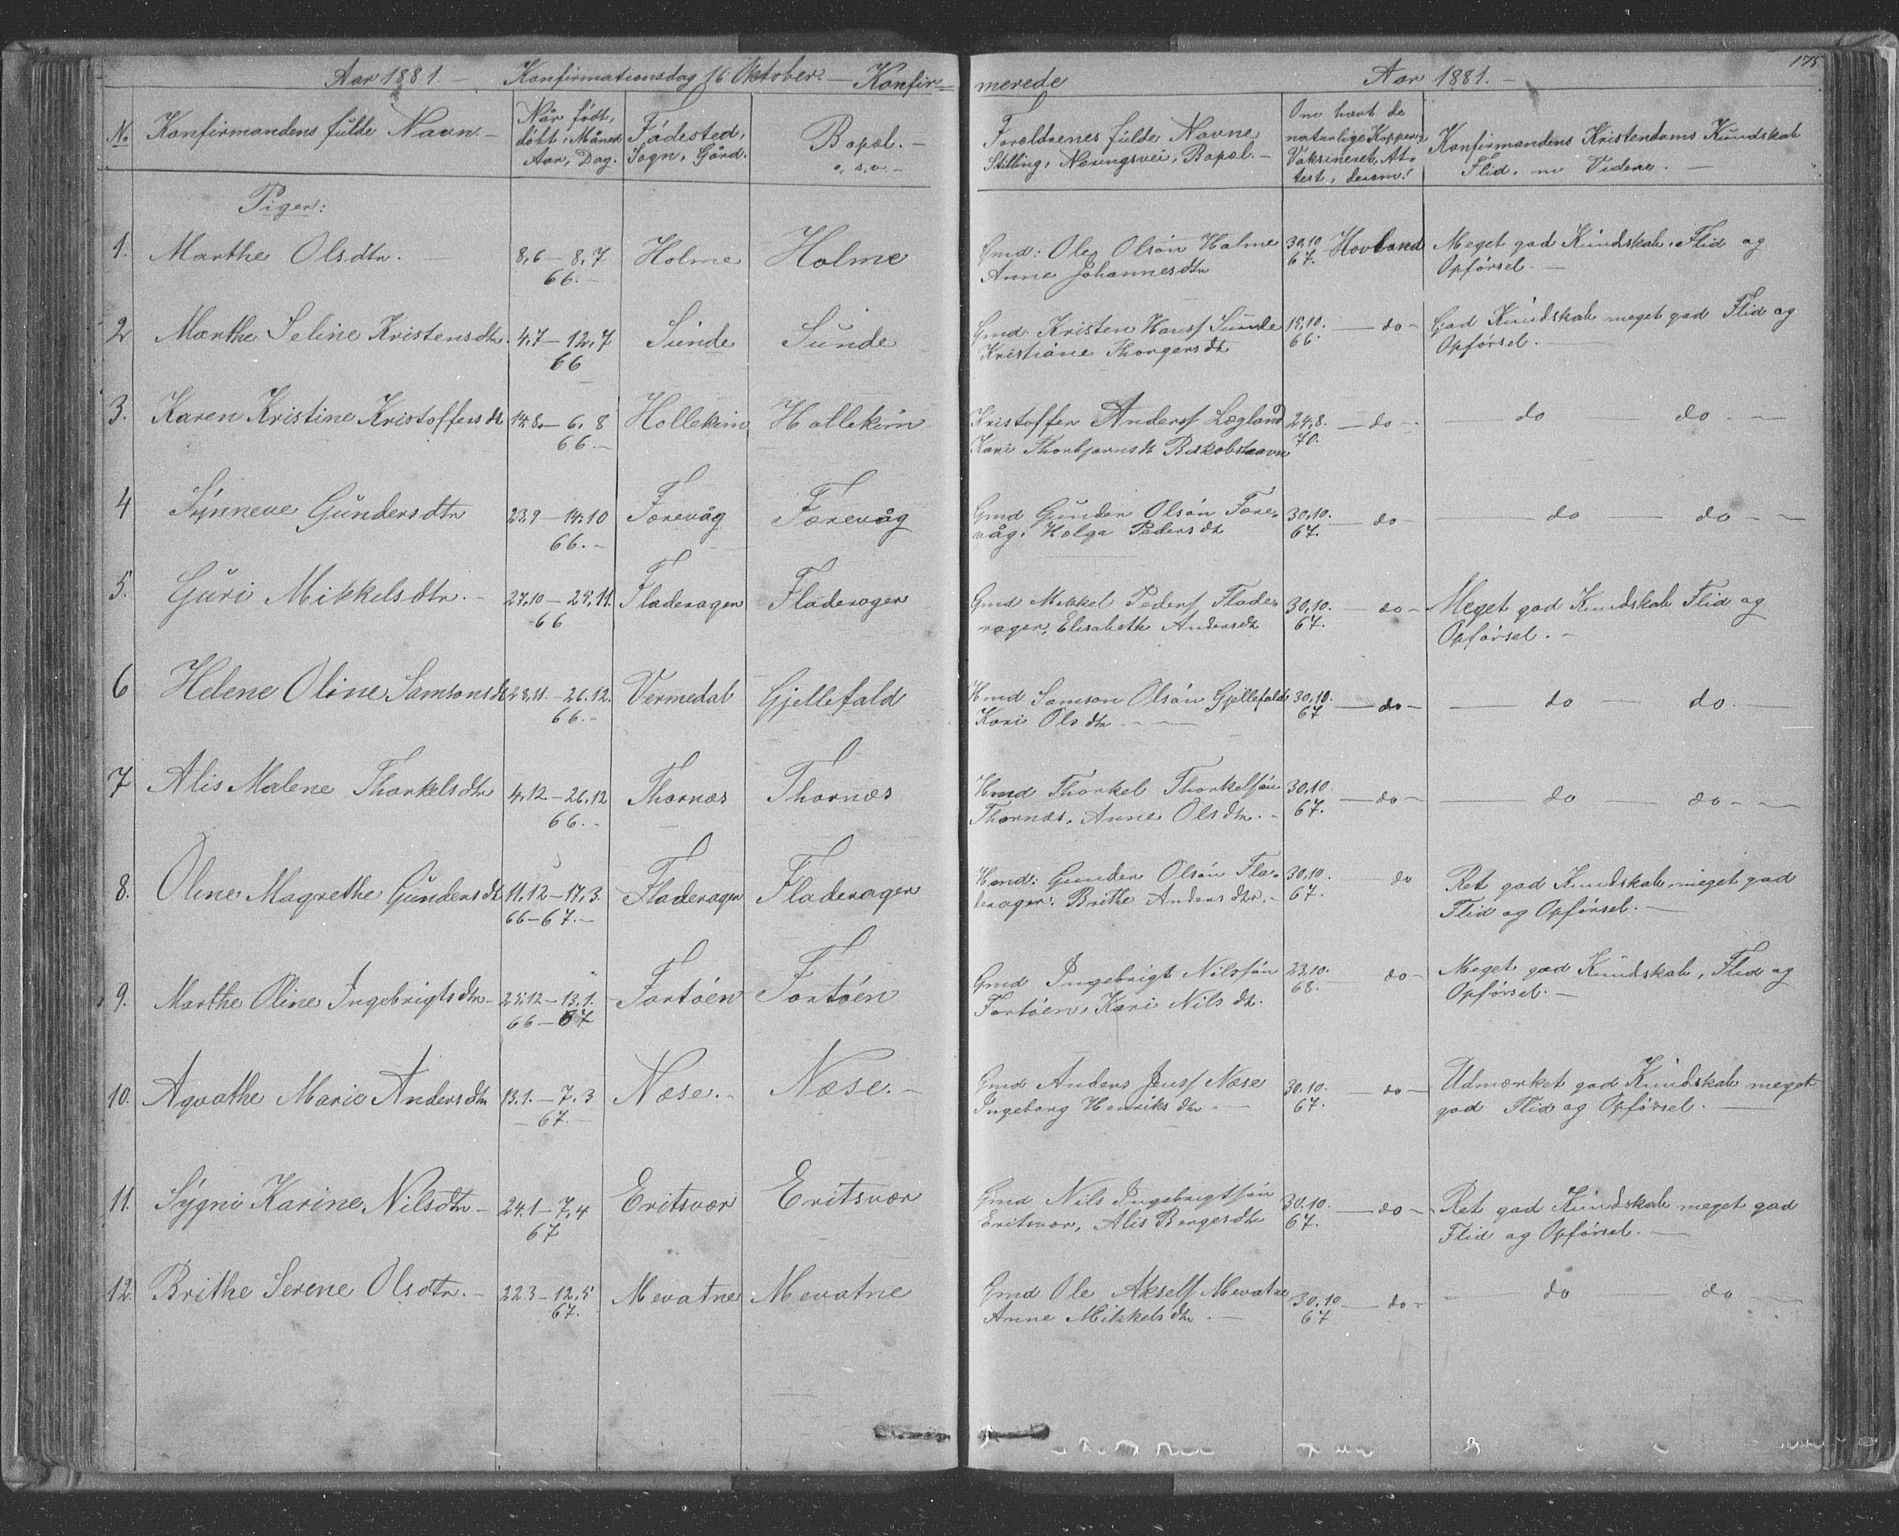 Aar 1881. — Konfirmationsdag 16 Oktober. — Konfir-
merede Aar 1881. — 175
No. Konfirmandens fulde Navn. — Når født, døbt, Måned Aar, Dag. Fødested, Sogn, Gård. Bopæl. — o, s, v. —
Forældrenes fulde Navne Stilling, Næringsvei, Bopæl. — Om havt de naturlige Kopper, Vaksineret, At- test, derom! Konfirmandens Kristendoms Kundskab Flid, m Videre. —
Piger:
1. Marthe Olsdtr. 8,6 — 8,7 Holme Holme Gmd: Ole Olsøn Holme 30,10 Hovland Meget god Kundskab, Flid og
66. — Anne Johannesdtr 67. Opførsel. —
2 Marthe Seline Kristensdtr. 4,7 — 12,7 Sunde Sunde Gmd. Kristen Hansf Sunde 19,10. — do — God Kundskab meget god Flid og
66 Kristiane Thorgersdtr 66. Opførsel. —
3. Karen Kristine Kristoffersdt 14,8. — 6,8 Hollekim Hollekim Kristoffer Andersf Lægland 24,8. — do — — do — do — —
66. — Kari Thorbjørnsdt Biskobshavn 70.
4 Synneve Gundersdtr 23,9 — 14,10 Færevåg Færevåg Gmd Gunder Olsøn Fære- 30,10. — do — — do — do — —
66. — våg. Helga Pedersdt 67.
5. Guri Mikkelsdtr. — 27,10 — 25,11. Fladerager Fladerager Gmd Mikkel Pedersf Flade- 30,10. — do — Meget god Kundskab Flid og
66 rager, Elisabeth Andersdt 67. Opførsel. —
6 Helene Oline Samsonsdt 28,11. — 26,12. Vermedal Gjellefald Hmd Samson Olsøn Gjellefald 30,10. — do — — do — do. —
66. — Kari Olsdtr — 67
7 Alis Malene Thorkelsdtr 4,12 — 26,12 Thornæs Thornæs Hmd Thorkel Thorkelsøn 30,10. — do — — do — do — —
66. — Thornæs, Anne Olsdtr. — 67.
8. Oline Magrethe Gundersdt 11,12 — 17,3. Fladerager Fladerager Hmd: Gunder Olsøn Fla- 30,10. do Ret god Kundskab meget god
66 — 67. — derager. Brithe Andersdtr. — 67. Flid og Opførsel. —
9. Marthe Oline Ingebrigtsdtr — 25,12 — 13,1. Fortøen Fortøen Gmd Ingebrigt Nilssøn 23,10. do — Meget god Kundskab, Flid og
66 — 67 Fortøen, Kari Nilsdtr. 68. Opførsel. —
10. Agathe Marie Andersdtr 13,1. — 7,3 Næse. — Næse. — Gmd Anders Jensf Næse 30,10. — do — Udmærket god Kundskab meget
67. — Ingeborg Henriksdtr — 67. god Flid og Opførsel. —
11. Sygni Karine Nilsdtr — 24,1 — 7,4 Eritsvær Eritsvær Gmd Nils Ingebrigtsøn 30,10. — do — Ret god Kundskab meget god
67 Eritsvær, Alis Børgesdtr 67. Flid og Opførsel. —
12. Brithe Serene Olsdtr. — 22,3 — 12,5 Mevatne Mevatne Gmd Ole Akself Mevatne 30,10 — do — — do — do —
67. Anne Mikkelsdtr. — 67